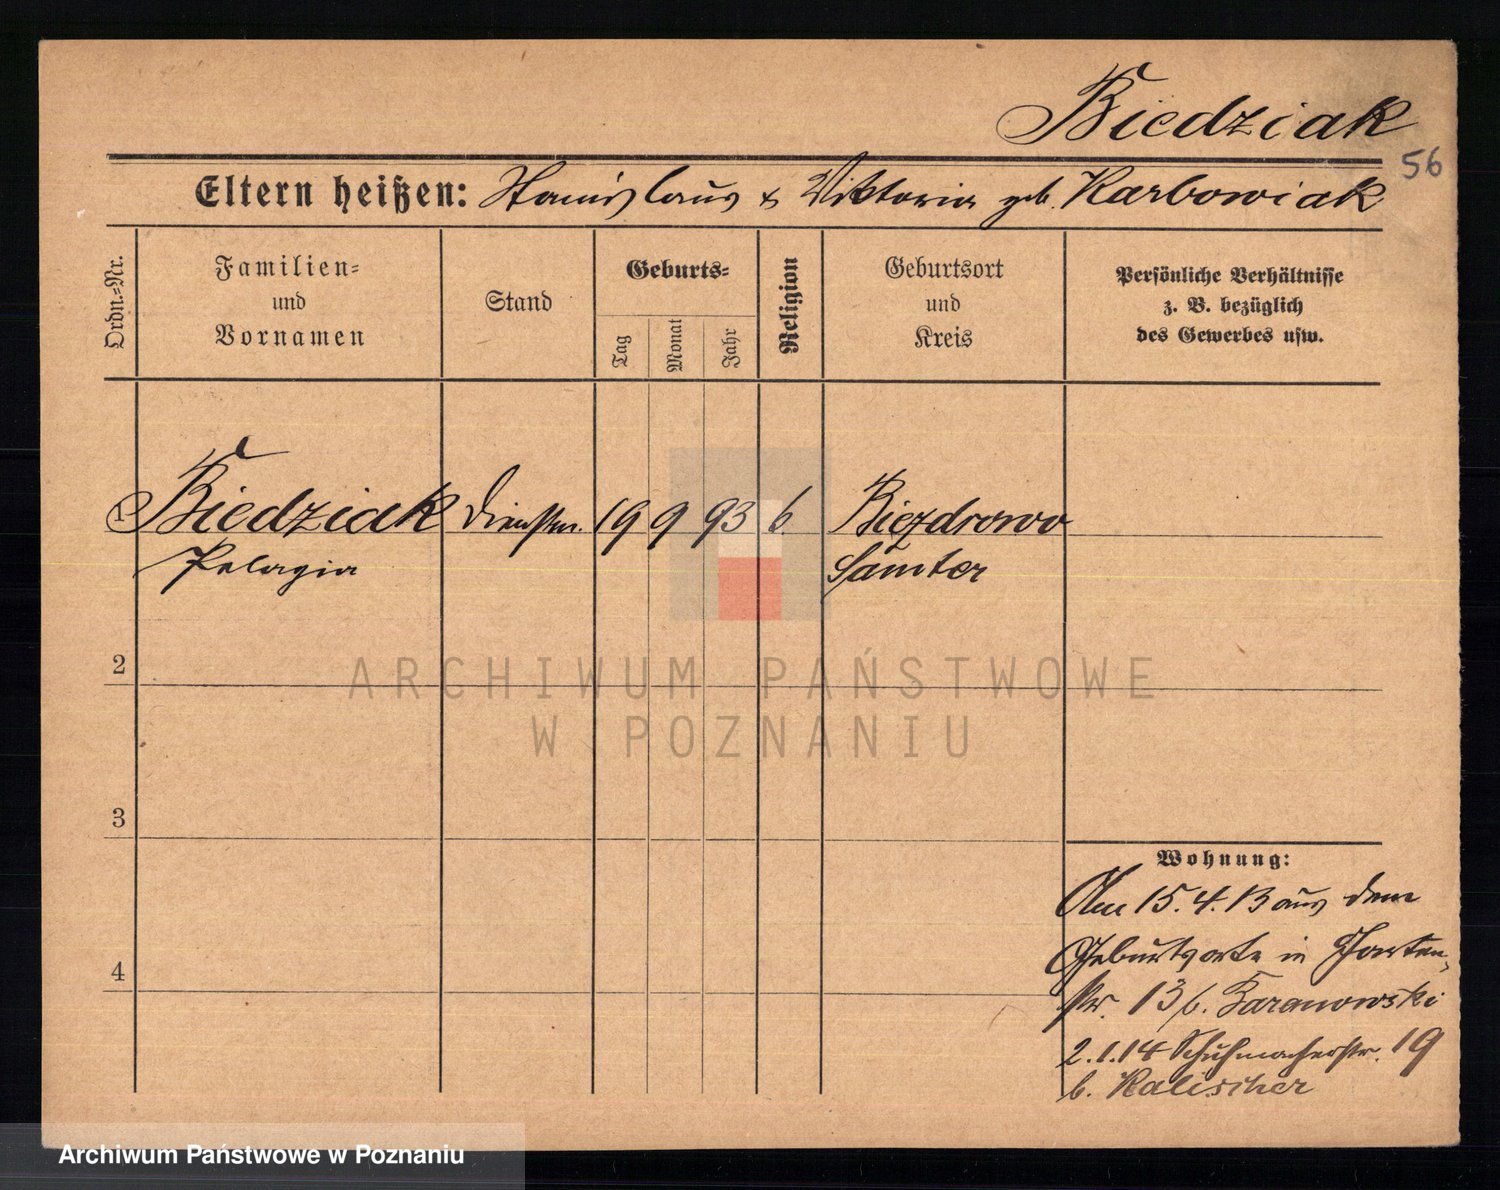 Biedziak
56
Eltern heißen: Stanislaus & Viktoria geb. Karbowiak
Ordn.-Nr.
Familien-
und
Vornamen
Stand
Geburts-
Tag
Monat
Jahr
Religion
Geburtsort
und
Kreis
Persönliche Verhältnisse
z. B. bezüglich
des Gewerbes usw.
1 Biedziak Dienstm. 19 9 93 k. Biezdrowo
Pelagia Samter
2
ARCHIWUM PAŃSTWOWE
W POZNANIU
3
Wohnung:
Am 15.4.13 aus dem
Geburtsorte in Garten-
4
str. 13 b. Baranowski
2.1.14 Schuhmacherstr. 19
b. Kalischer
Archiwum Państwowe w Poznaniu